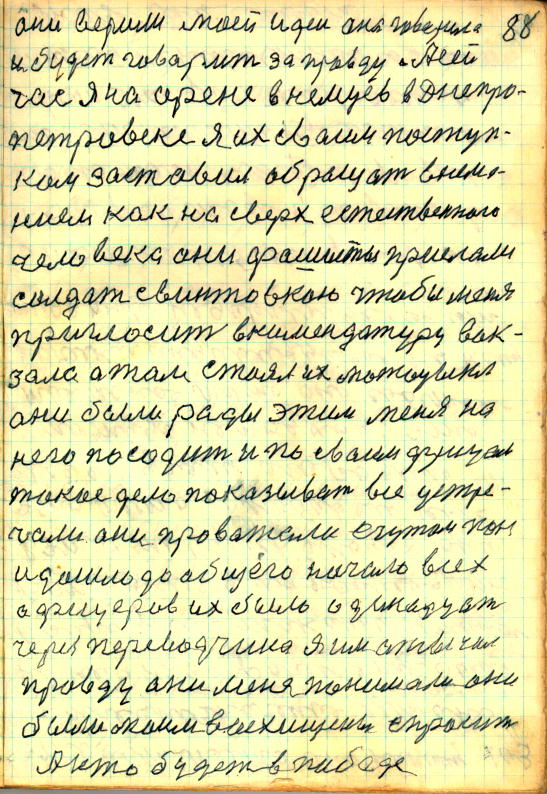 88
они верили моей идеи она говорила
и будет говарит за правду. А сей
час я на арене в немцев в Днепро-
петровске я их сваим поступ-
ком заставил обращат внема-
нием как на сверх естественного
человека они фашисты прислали
солдат свинтовкою чтобы меня
приглосит в комендатуру вок-
зала а там стоял их мотоцикл
они были рады этим меня на
него посодит и по сваим
такое дело показыват все устре-
чали они проважали
и дошло до общего начало всех
афицеров их было одинацат
через переводчика я им атвечал
правду ани меня понимали они
были моим восхищены спросит
А кто будет в пабеде